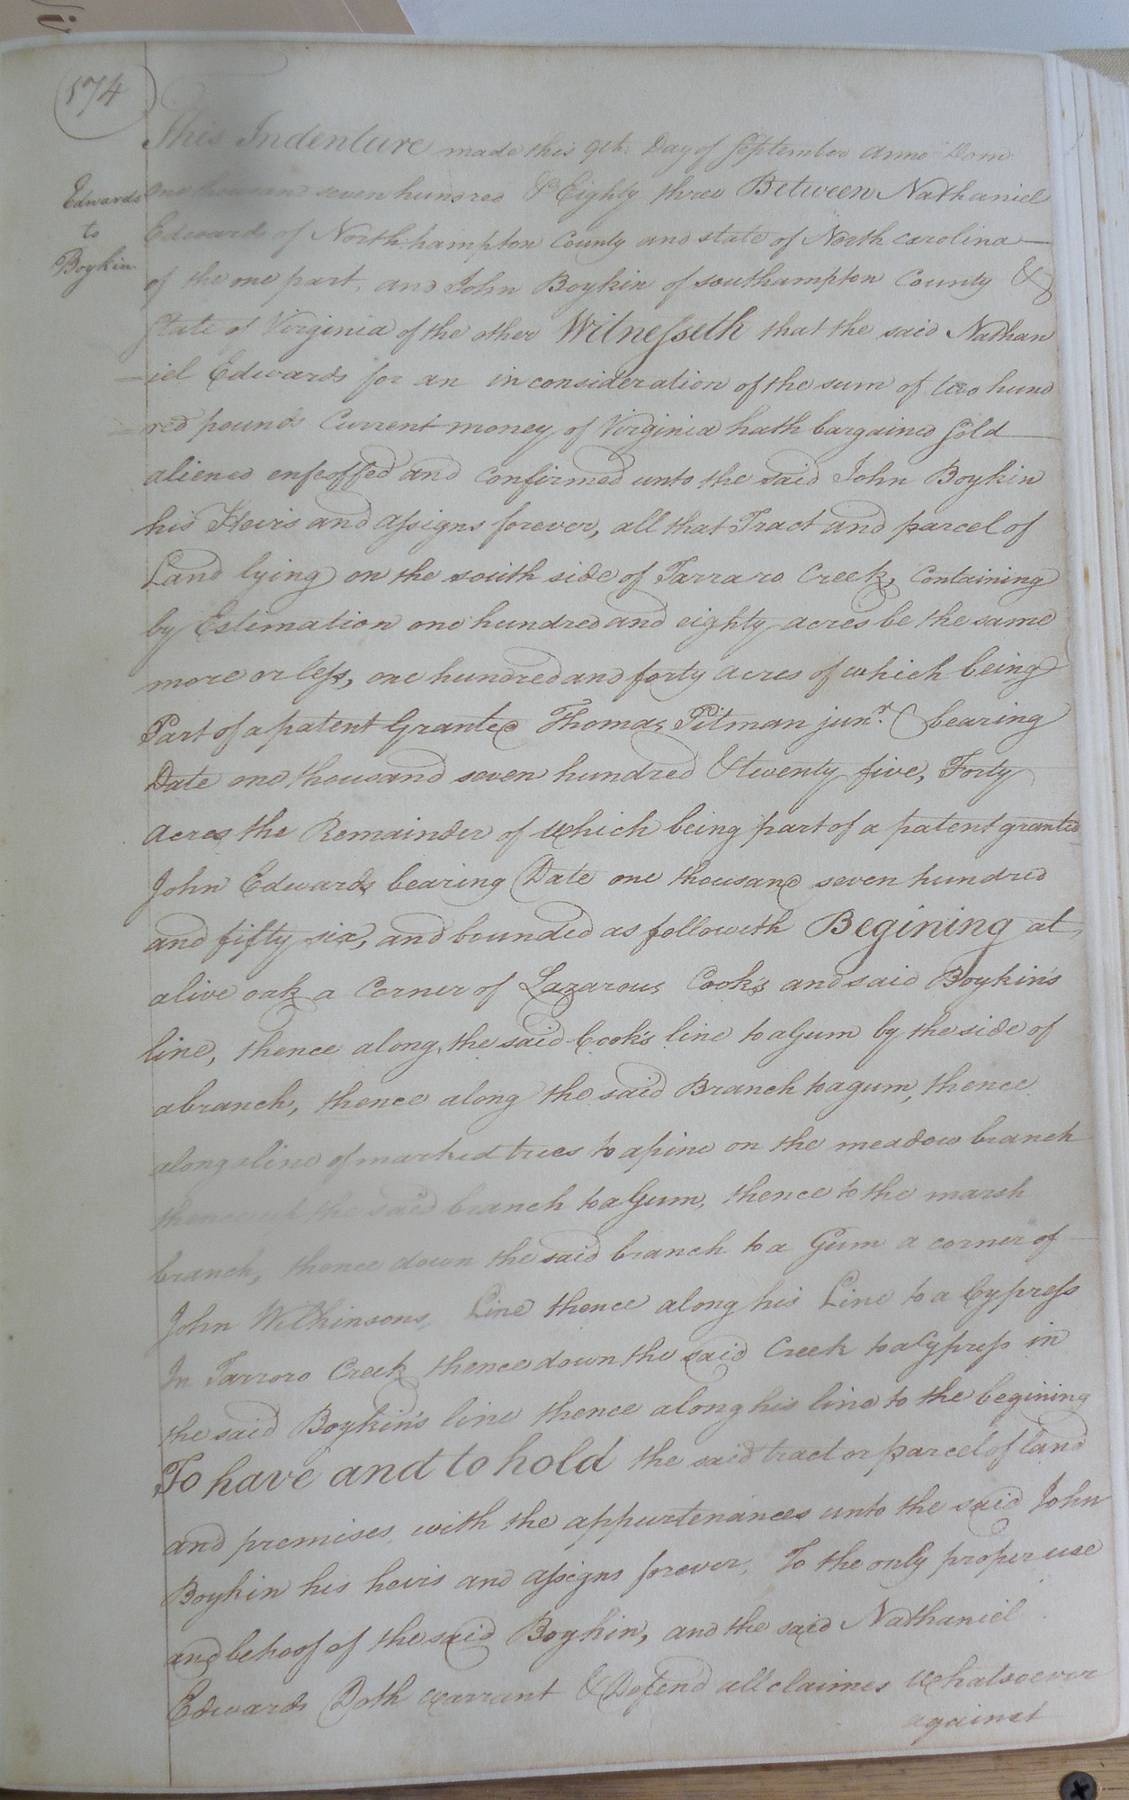 174
Edwards
to
Boykin
This Indenture made this 9th. Day of September anno Dom
one thousand seven hundred & Eighty three Between Nathaniel
Edwards of Northhampton County and state of North carolina
of the one part, and John Boykin of southampton County &
State of Virginia of the other Witnesseth that the said Nathan
iel Edwards for an in consideration of the sum of two hund
red pounds Current money of Virginia hath bargained Sold
aliened enfeoffed and confirmed unto the said John Boykin
his Heirs and assigns forever, all that Tract and parcel of
Land lying on the south side of Tarraro Creek, Containing
by Estimation one hundred and eighty acres be the same
more or less, one hundred and forty acres of which being
Part of a patent Granted Thomas Pitman junr. bearing
Date one thousand seven hundred & twenty five, Forty
acres the Remainder of which being part of a patent granted
John Edwards bearing Date one thousand seven hundred
and fifty six, and bounded as followeth Begining at
a live oak a Corner of Lazarous Cook's and said Boykin's
line, thence along the said Cook's line to a Gum by the side of
a branch, thence along the said Branch to a gum, thence
along a line of marked trees to a pine on the meadow branch
thence up the said branch to a Gum, thence to the marsh
branch, thence down the said branch to a Gum a corner of
John Wilkinsons Line thence along his Line to a Cypress
In Tarroro Creek thence down the said Creek to a Cypress in
the said Boykin's line thence along his line to the begining
To have and to hold the said tract or parcel of land
and premises with the appurtenances unto the said John
Boykin his heirs and assigns forever, To the only proper use
and behoof of the said Boykin, and the said Nathaniel
Edwards Doth warrant & Defend all claimes whatsoever
against